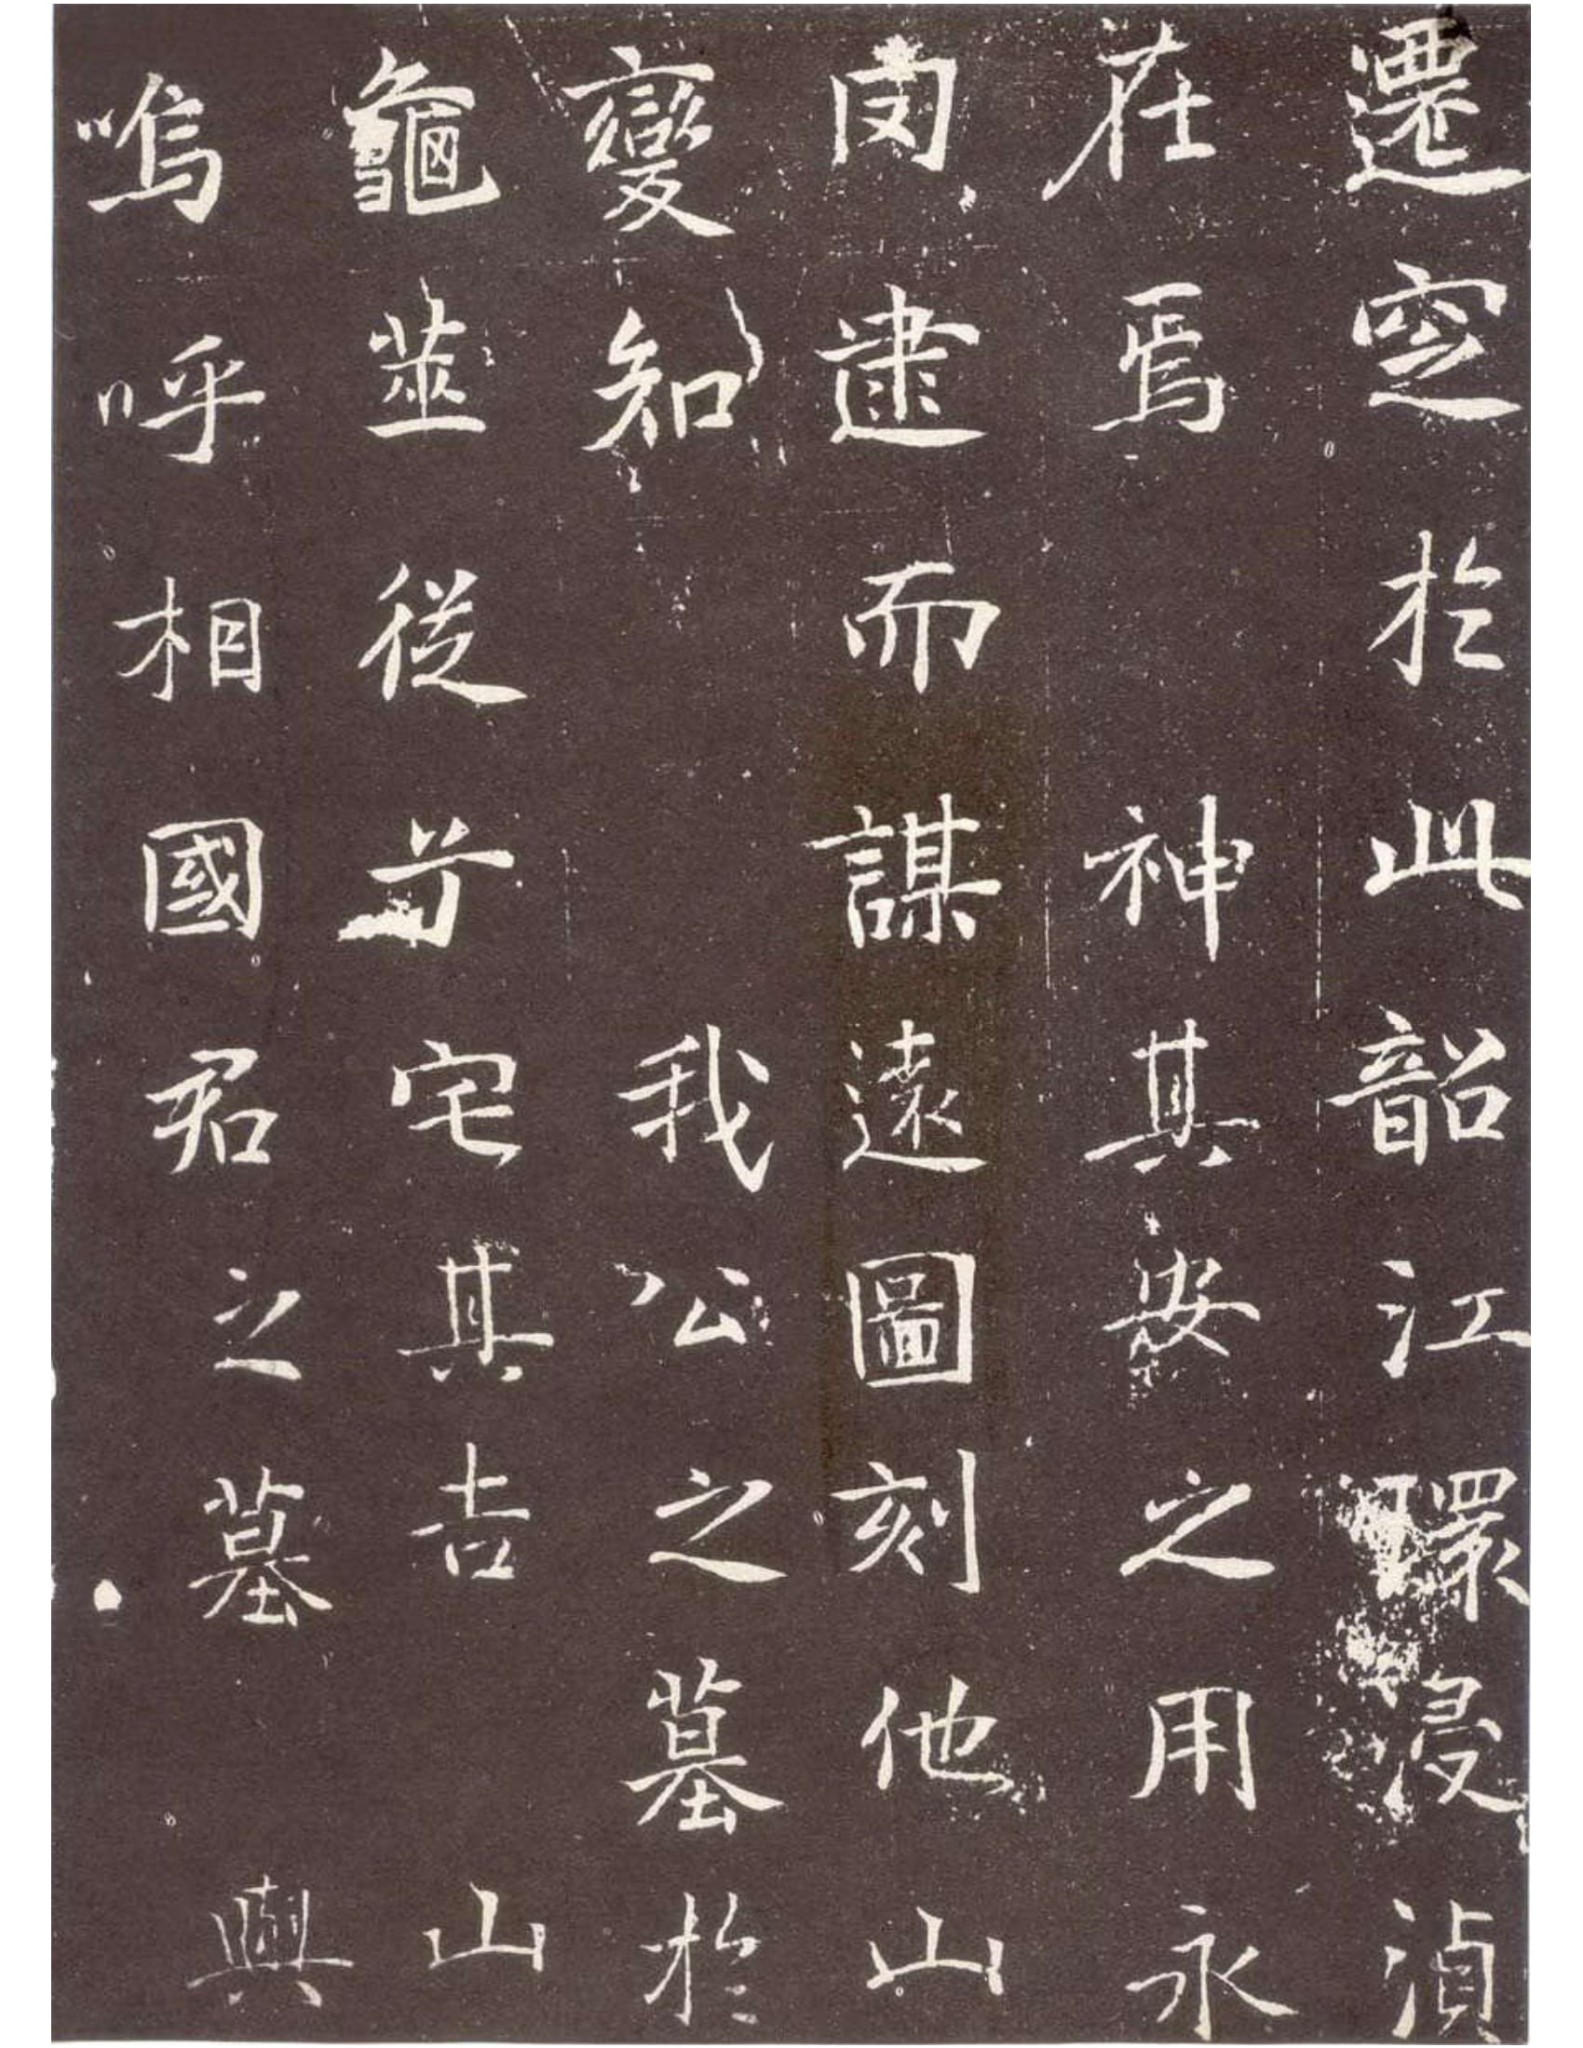 遷窆於此韶江環浸湞
在焉神其安之用永
罔逮而謀遠圖刻他山
變知我公之墓於
龜筮從兮宅其吉山
嗚呼相國君之墓與